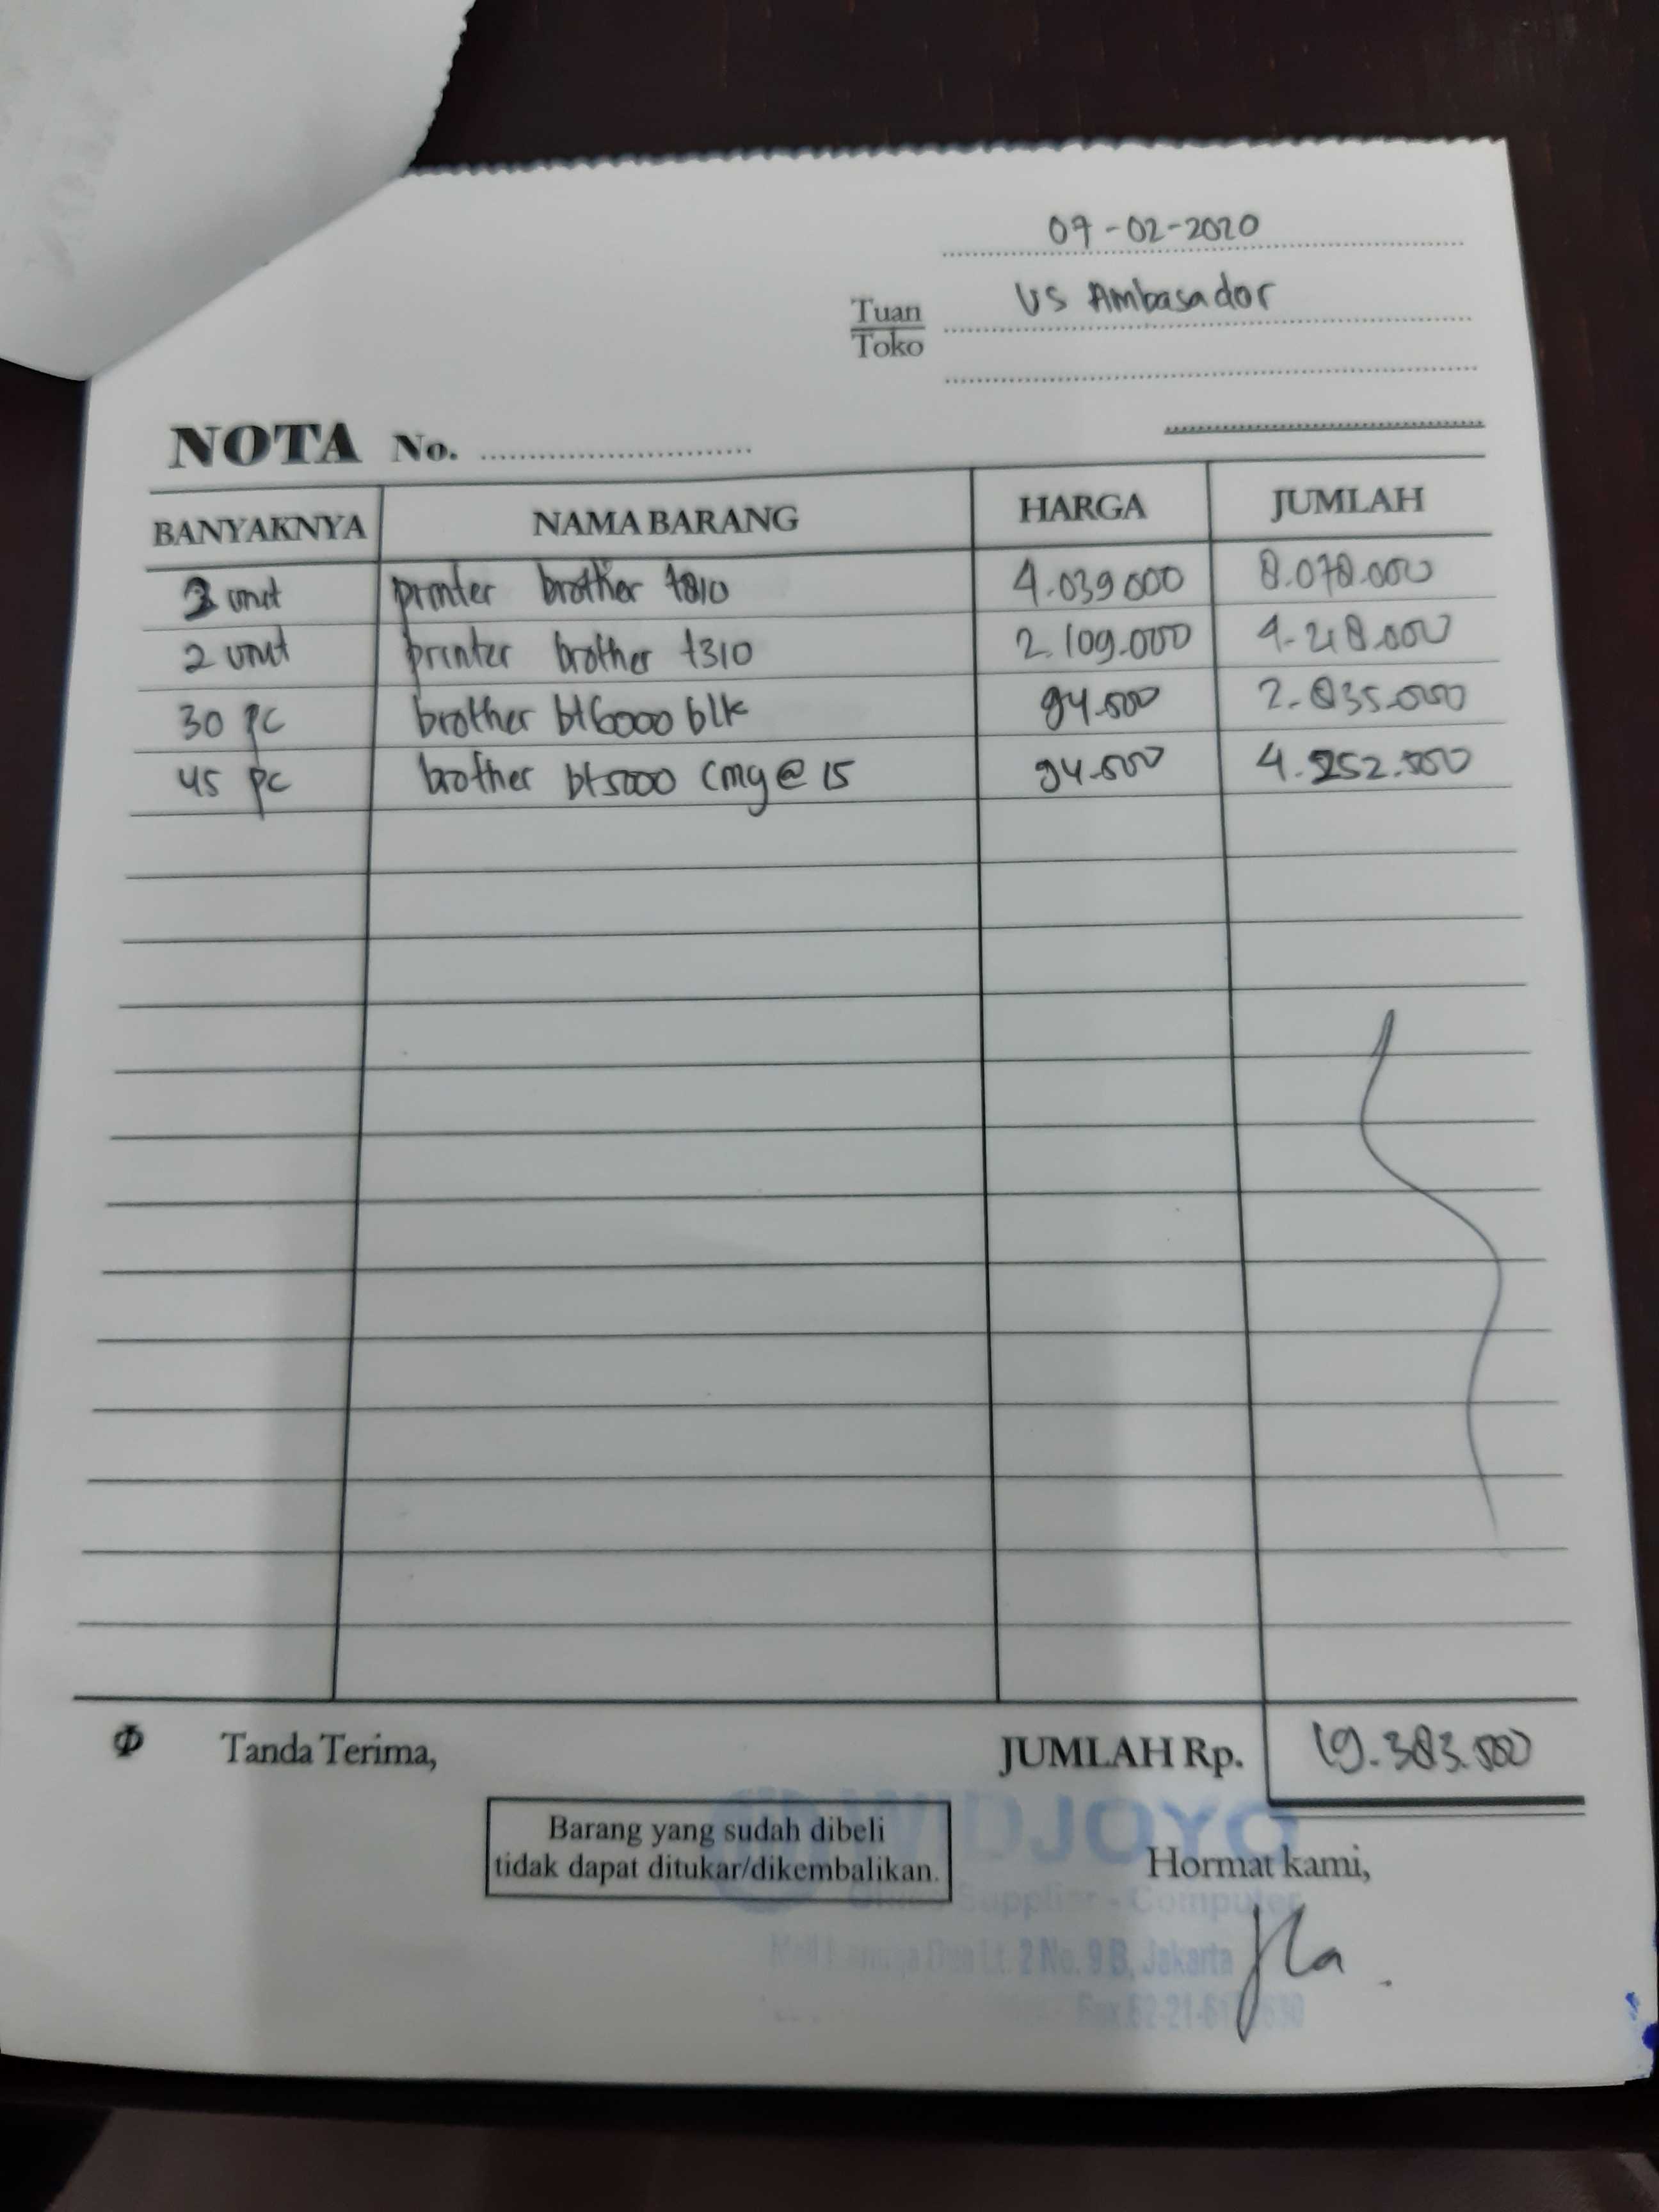 07-02-2020
Tuan
Toko
US Ambasador
NOTA No.
BANYAKNYA NAMA BARANG HARGA JUMLAH
2 unit printer brother t810 4.039.000 8.078.000
2 unit printer brother t310 2.109.000 4.218.000
30 pc brother bt6000 blk 94.500 2.835.000
45 pc brother bt5000 cmy @ 15 94.500 4.252.500
Tanda Terima,
JUMLAH Rp. 19.383.500
Barang yang sudah dibeli
tidak dapat ditukar/dikembalikan.
Hormat kami,
DJOYO
Supplier - Computer
Lt. 2 No. 9 B, Jakarta